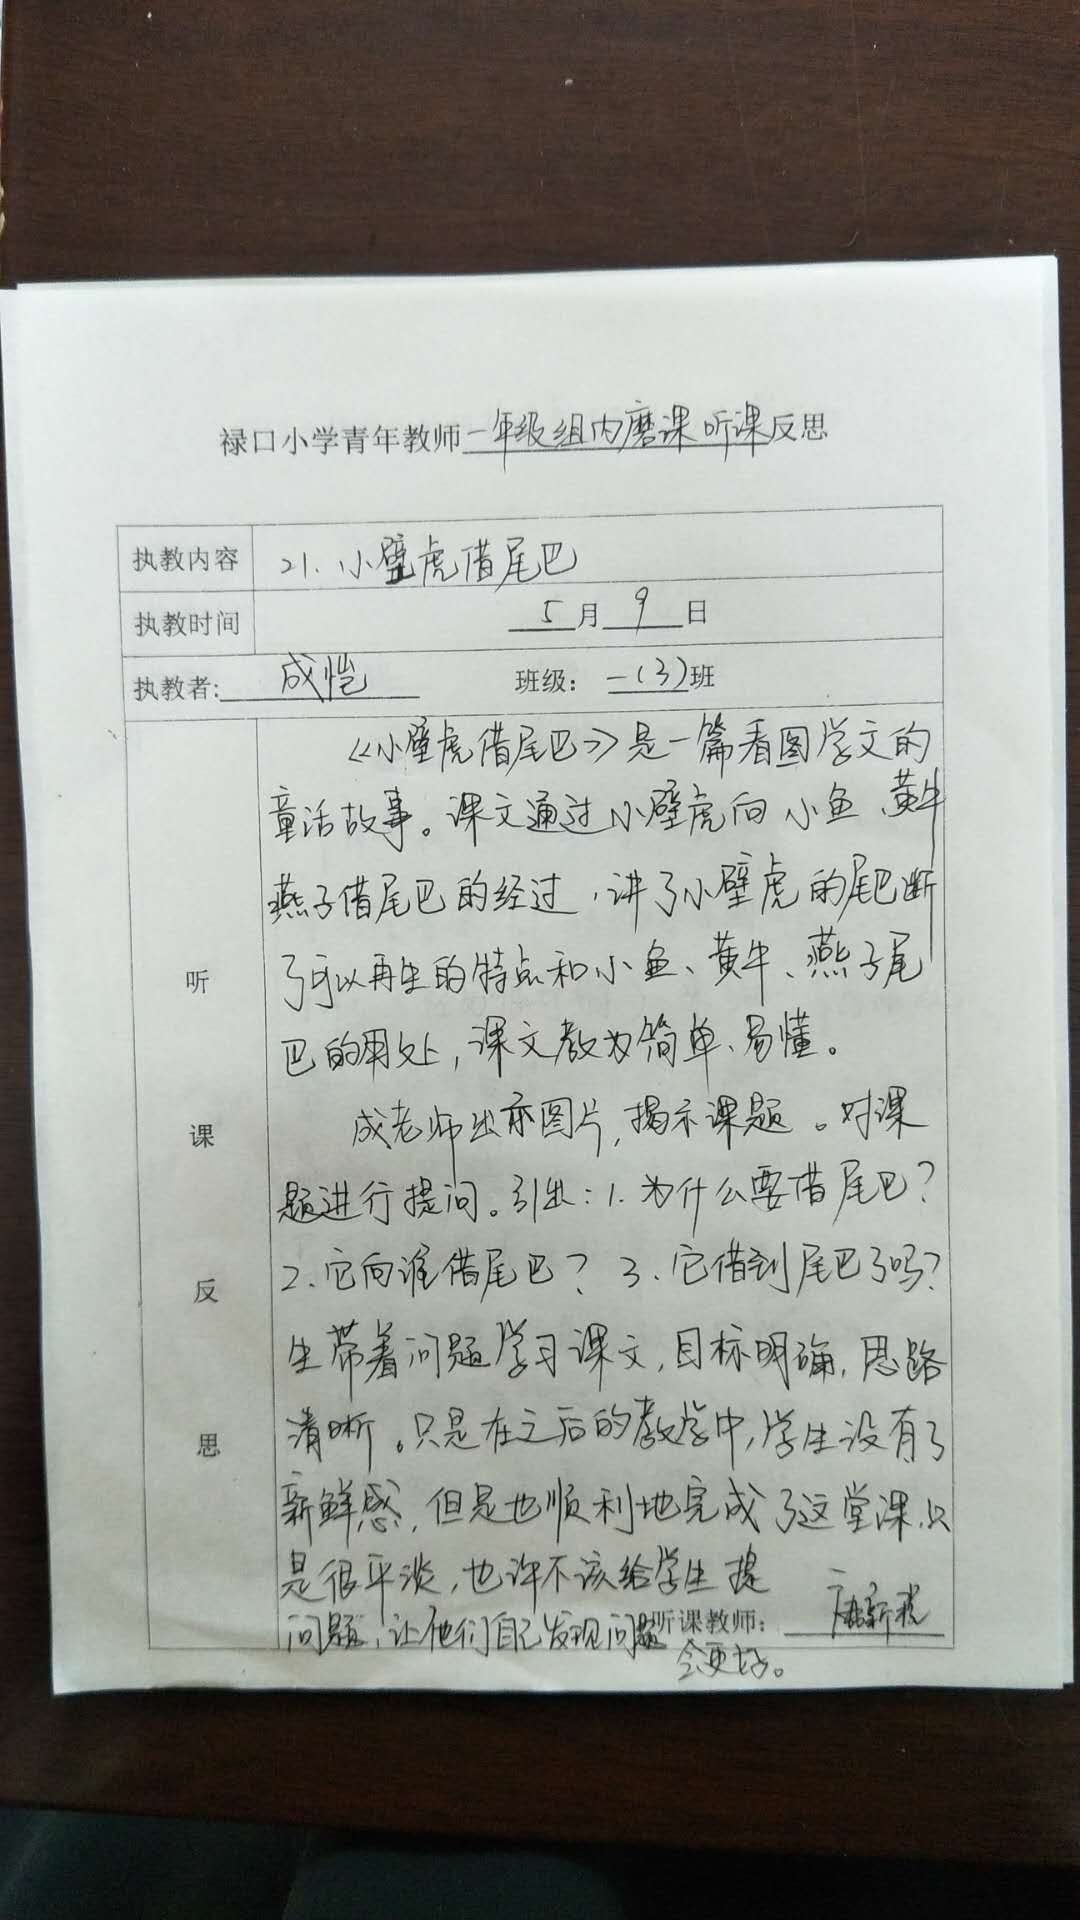 禄口小学青年教师一年级组内磨课听课反思
执教内容 21.小壁虎借尾巴
执教时间 5月9日
执教者:成恺 班级：一(3)班
听课反思
《小壁虎借尾巴》是一篇看图学文的
童话故事。课文通过小壁虎向小鱼、黄牛
燕子借尾巴的经过,讲了小壁虎的尾巴断
了可以再生的特点和小鱼、黄牛、燕子尾
巴的用处,课文教为简单、易懂。
成老师出示图片,揭示课题。对课
题进行提问。引出:1.为什么要借尾巴?
2.它向谁借尾巴? 3.它借到尾巴了吗?
生带着问题学习课文,目标明确,思路
清晰。只是在之后的教学中,学生没有了
新鲜感,但是也顺利地完成了这堂课,只
是很平淡,也许不该给学生提
问题,让他们自己发现问题
会更好。
听课教师：